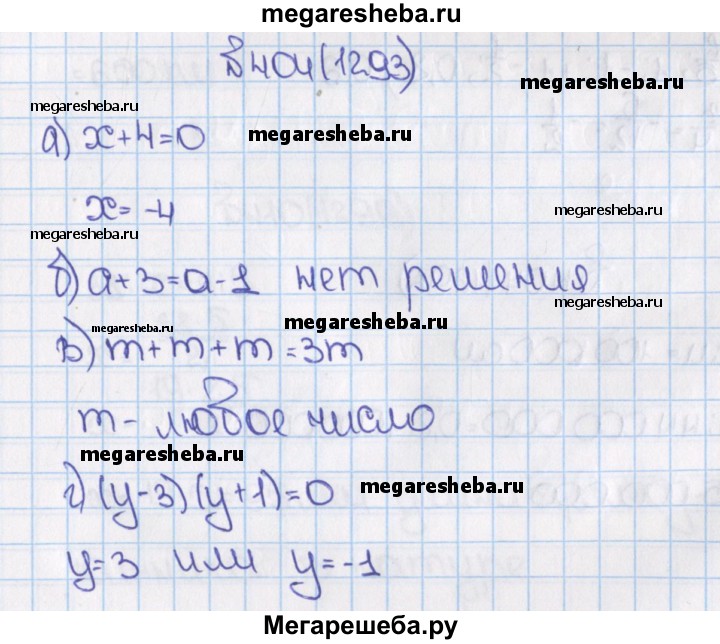 megaresheba.ru
№ 404 (1293)
megaresheba.ru
megaresheba.ru
а) x+4=0 megaresheba.ru
x= -4 megaresheba.ru
megaresheba.ru
б) a+3=a-1 нет решения
megaresheba.ru
megaresheba.ru megaresheba.ru
в) m+m+m=3m
m- любое число
megaresheba.ru
г) (y-3)(y+1)=0 megaresheba.ru
y=3 или y=-1
Мегарешеба.ру